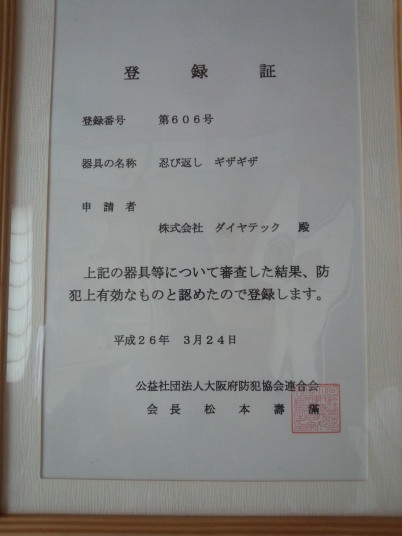 登録証
登録番号 第６０６号
器具の名称 忍び返し ギザギザ
申請者
株式会社 ダイヤテック 殿
上記の器具等について審査した結果、防
犯上有効なものと認めたので登録します。
平成２６年 ３月２４日
公益社団法人大阪府防犯協会連合会
会長 松本壽満